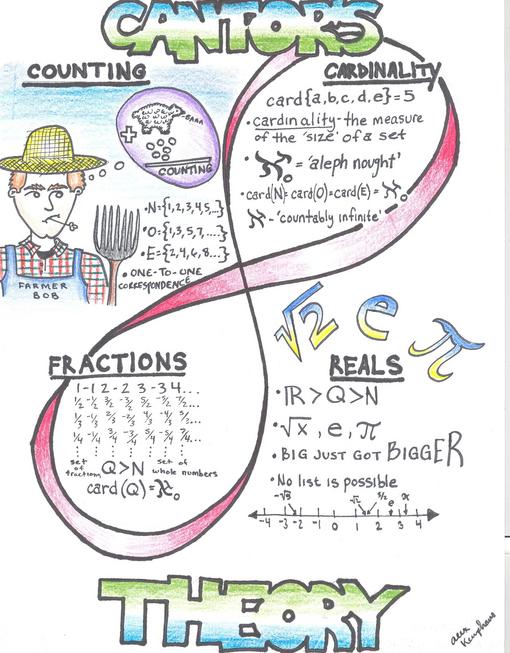 CANTOR'S
COUNTING
BAAA
+
COUNTING
• N={1,2,3,4,5,...}
• O={1,3,5,7,...}
• E={2,4,6,8...}
• ONE-TO-ONE
CORRESPONDENCE
FARMER
BOB
CARDINALITY
card{a,b,c,d,e}=5
• cardinality-the measure
of the 'size' of a set
• ℵ₀ = 'aleph nought'
• card(N)=card(O)=card(E)=ℵ₀
ℵ-'countably infinite'
√2 e π
FRACTIONS
1 -1 2 -2 3 -3 4...
set of fractions Q>N set of whole numbers
card(Q)=ℵ₀
REALS
• ℝ>Q>N
• √x, e, π
• BIG JUST GOT BIGGER
• No list is possible
-√3 √2 3/2 e π
-4 -3 -2 -1 0 1 2 3 4
THEORY
alex